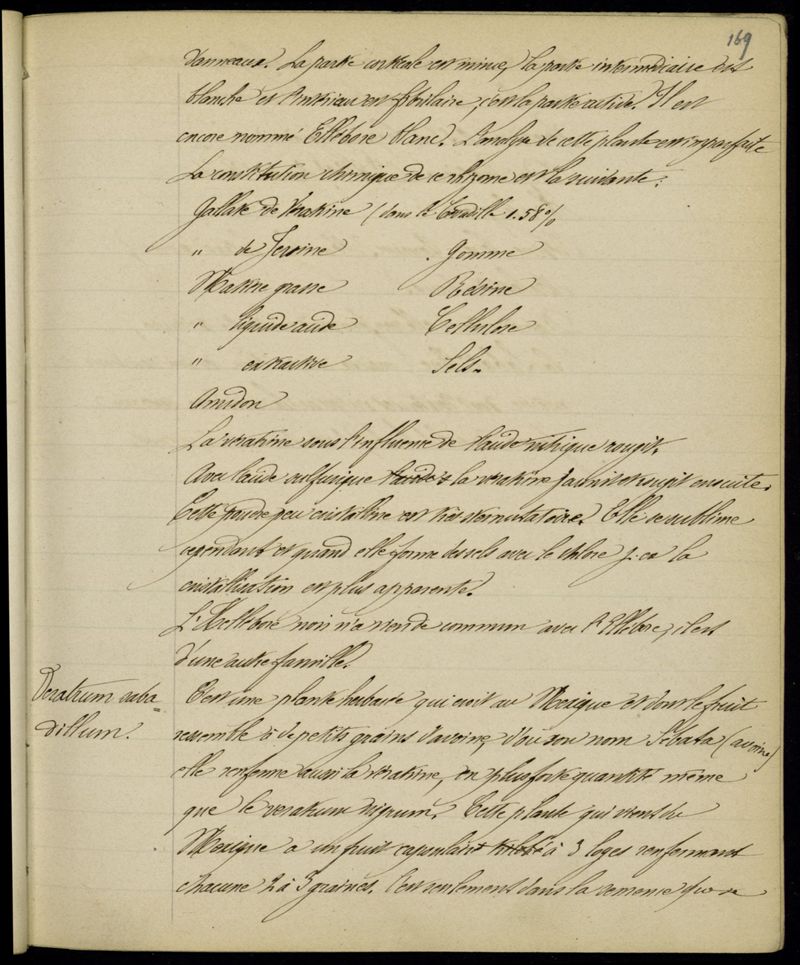 169
d'anneaux. La partie corticale est mince, la partie intermédiaire est
blanche et l'intérieur est fibrillaire, c'est la partie active. Il est
encore nommé Ellébore blanc. L'analyse de cette plante est imparfaite
La constitution chimique de ce rhizome est la suivante :
Gallate de Vératrine (dans la Cévadille 1.58%
" de Jervine . Gomme
Matière grasse Résine
" liquide acide Cellulose
" extractive Sels.
Amidon
La vératrine sous l'influence de l'acide nitrique rougit.
Avec l'acide sulfurique la vératrine jaunit et rougit ensuite.
Cette poudre peu cristalline est très sternutatoire. Elle se sublime
cependant et quand elle forme des sels avec le chlore p. ex la
cristallisation est plus apparente.
L'Hellébore noir n'a rien de commun avec l'Ellébore, il est
d'une autre famille.
Veratrum saba
dillum.
C'est une plante herbacée qui croit au Mexique et dont le fruit
ressemble à de petits grains d'avoine, d'où son nom (avoine)
elle renferme aussi la vératrine, en plus forte quantité même
que le veratrum nigrum. Cette plante qui vient du
Mexique a un fruit capsulaire à 3 loges renfermant
chacune 2 à 3 graines. C'est seulement dans la semence que